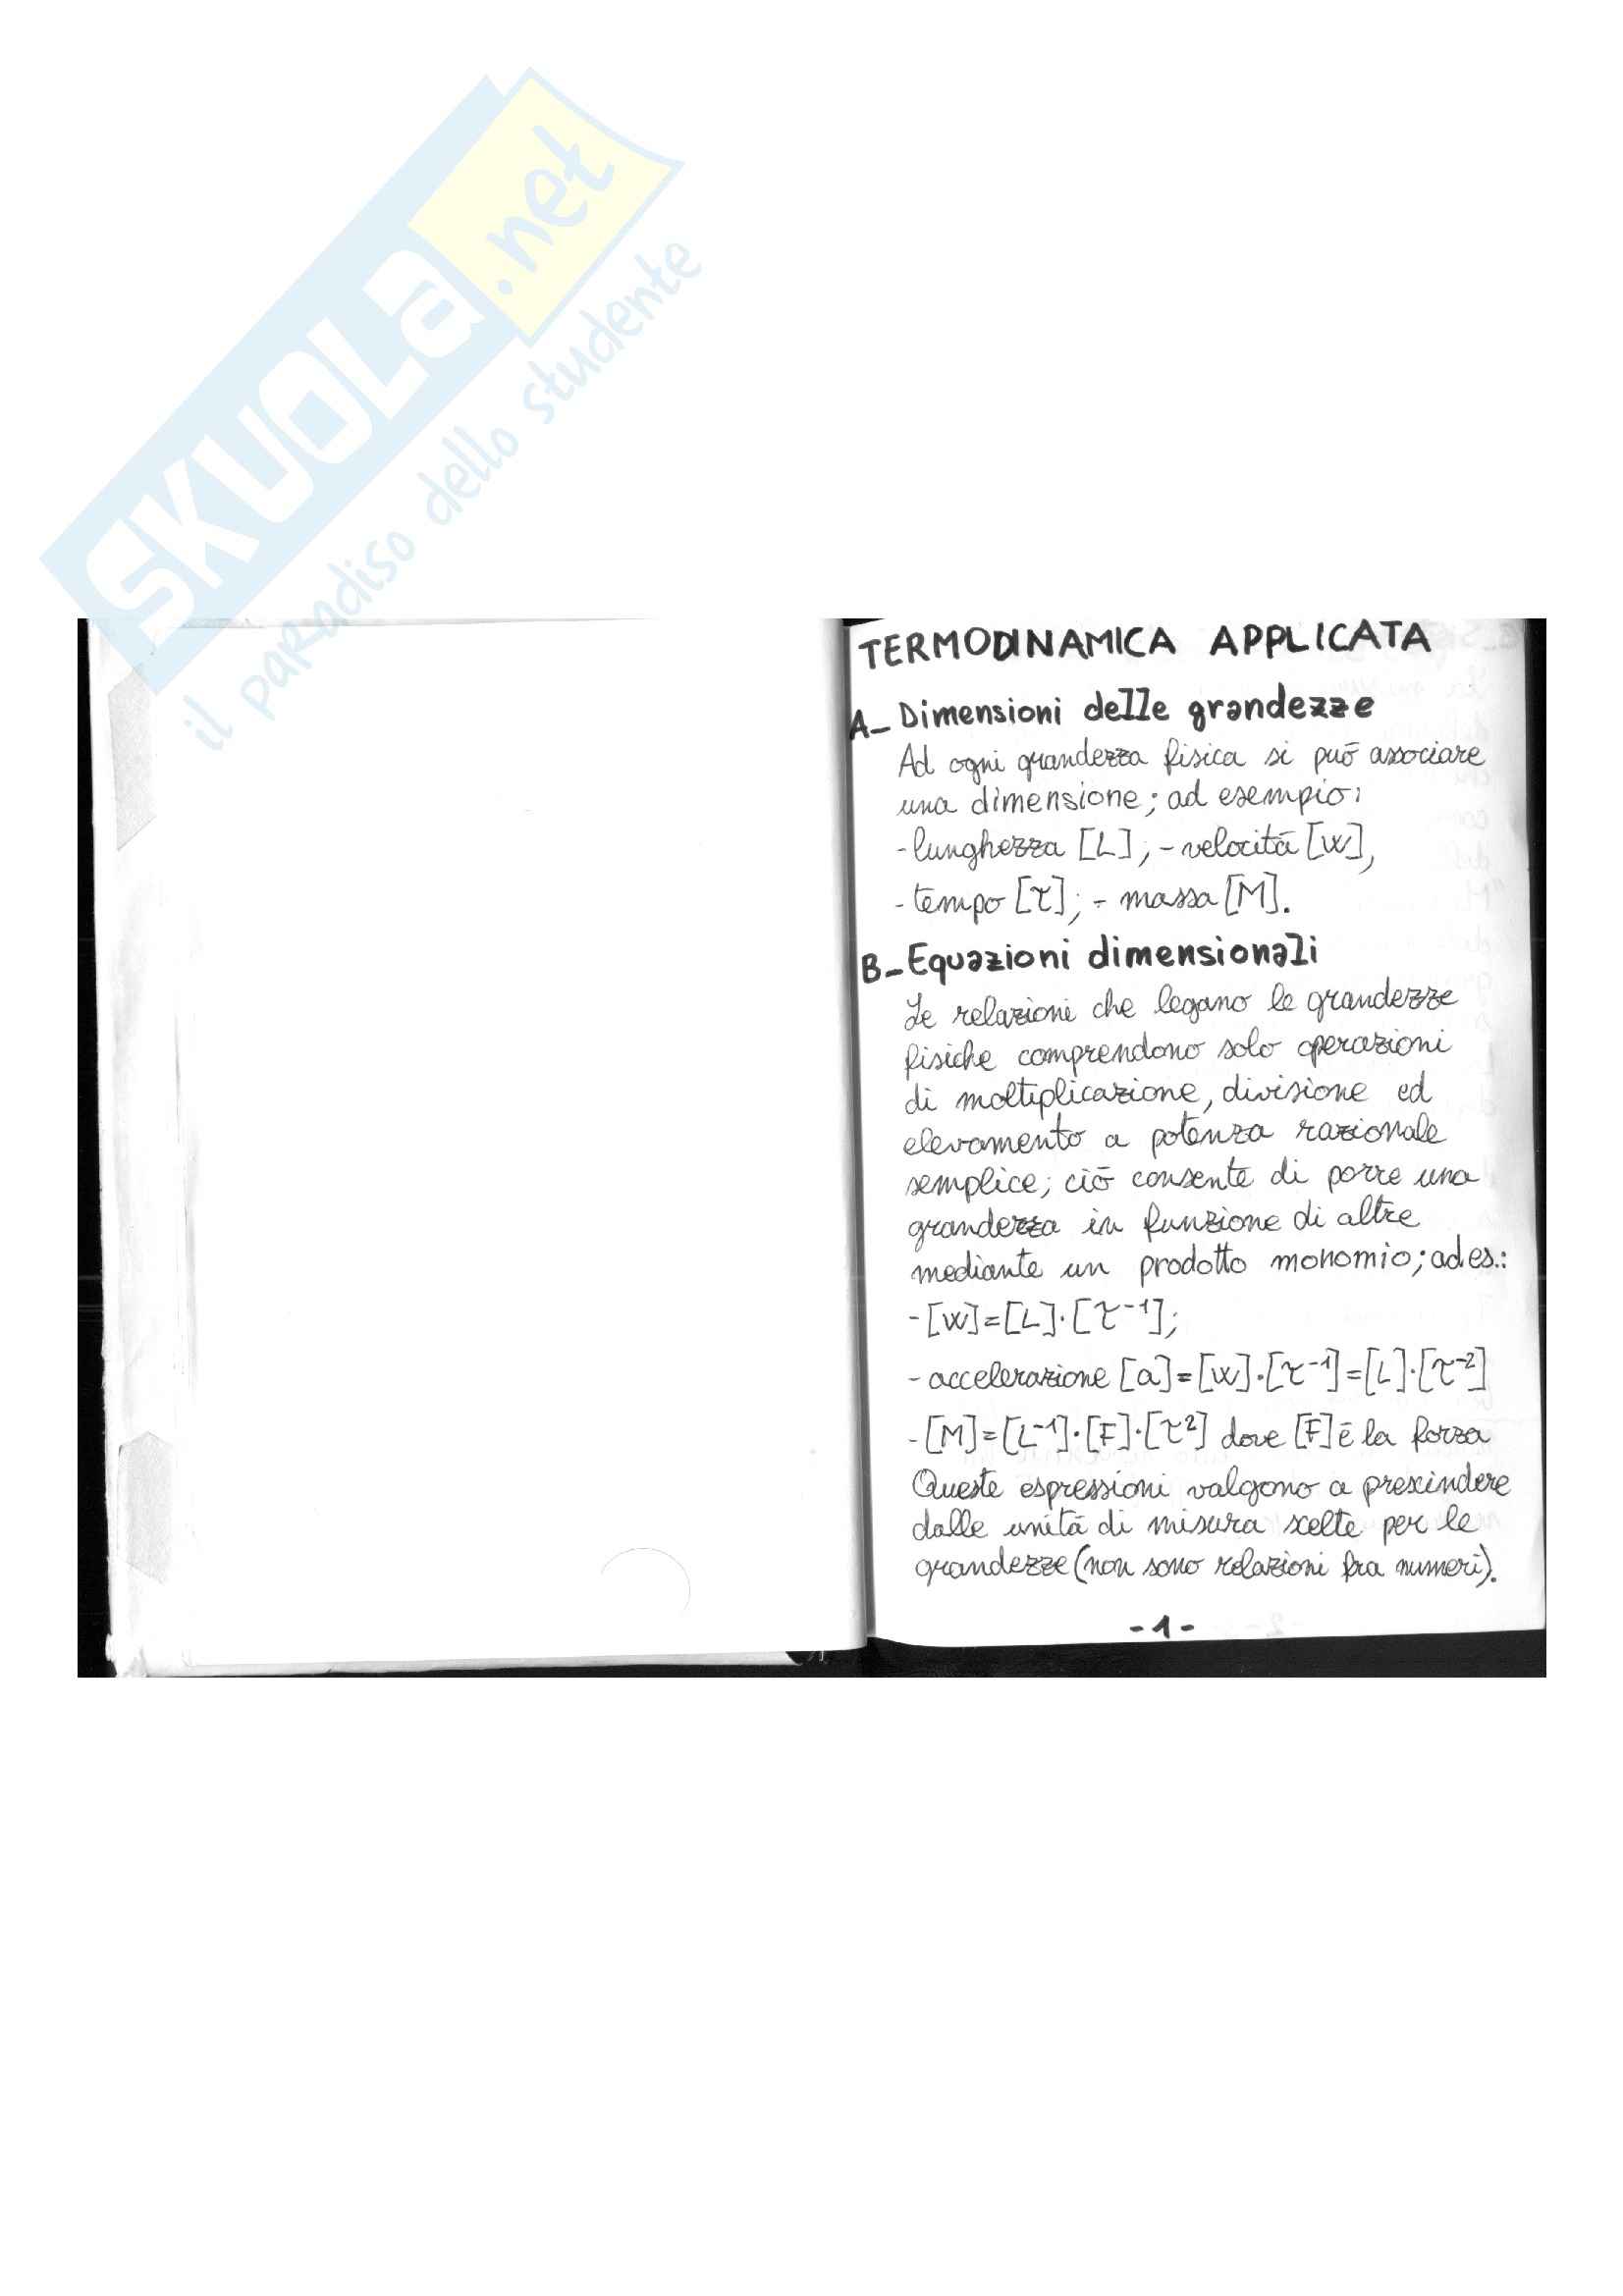 SKUOLa.net
il paradiso dello studente
TERMODINAMICA APPLICATA
A_ Dimensioni delle grandezze
Ad ogni grandezza fisica si può associare
una dimensione; ad esempio:
- lunghezza [L]; - velocità [w],
- tempo [τ]; - massa [M].
B_ Equazioni dimensionali
Le relazioni che legano le grandezze
fisiche comprendono solo operazioni
di moltiplicazione, divisione ed
elevamento a potenza razionale
semplice; ciò consente di porre una
grandezza in funzione di altre
mediante un prodotto monomio; ad es.:
- [w]=[L]·[τ⁻¹];
- accelerazione [a]=[w]·[τ⁻¹]=[L]·[τ⁻²]
- [M]=[L⁻¹]·[F]·[τ²] dove [F] è la forza
Queste espressioni valgono a prescindere
dalle unità di misura scelte per le
grandezze (non sono relazioni fra numeri).
-1-